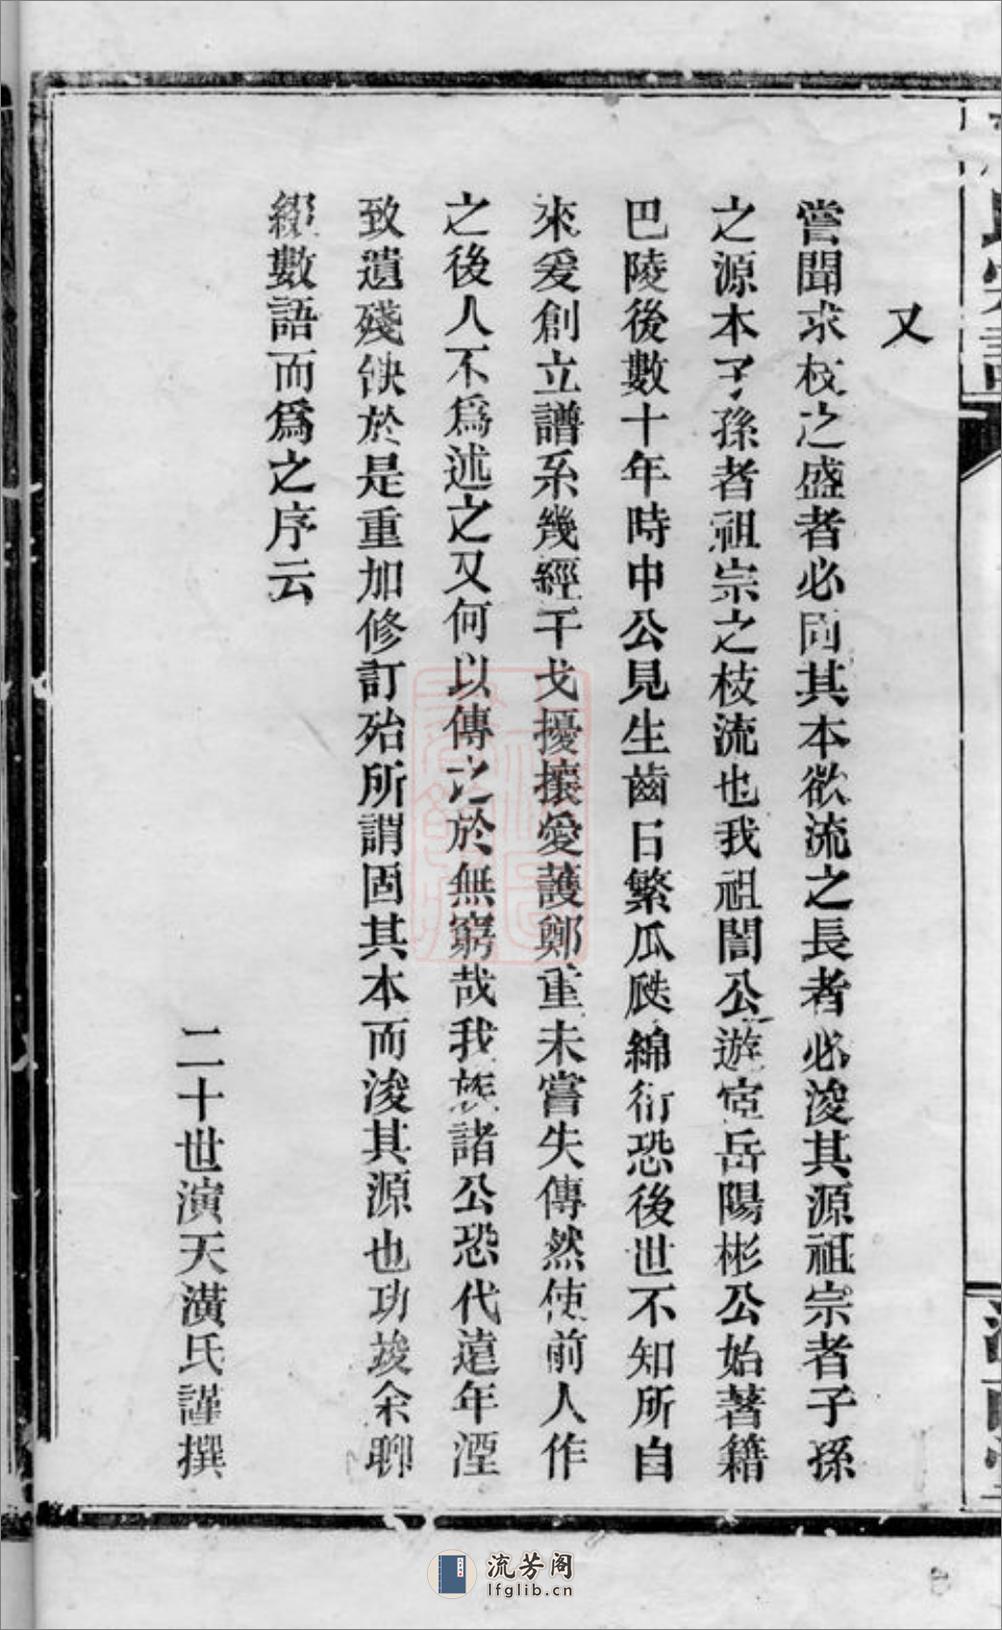 又
嘗聞求枝之盛者必固其本欲流之長者必浚其源祖宗者子孫
之源本子孫者祖宗之枝流也我祖誾公遊宦岳陽彬公始著籍
巴陵後數十年時中公見生齒日繁瓜瓞綿衍恐後世不知所自
來爰創立譜系幾經干戈擾攘愛護鄭重未嘗失傳然使前人作
之後人不為述之又何以傳之於無窮哉我族諸公恐代遠年湮
致遺殘缺於是重加修訂殆所謂固其本而浚其源也功竣余聊
綴數語而為之序云
二十世演天潢氏謹撰
流芳阁
lfglib.cn